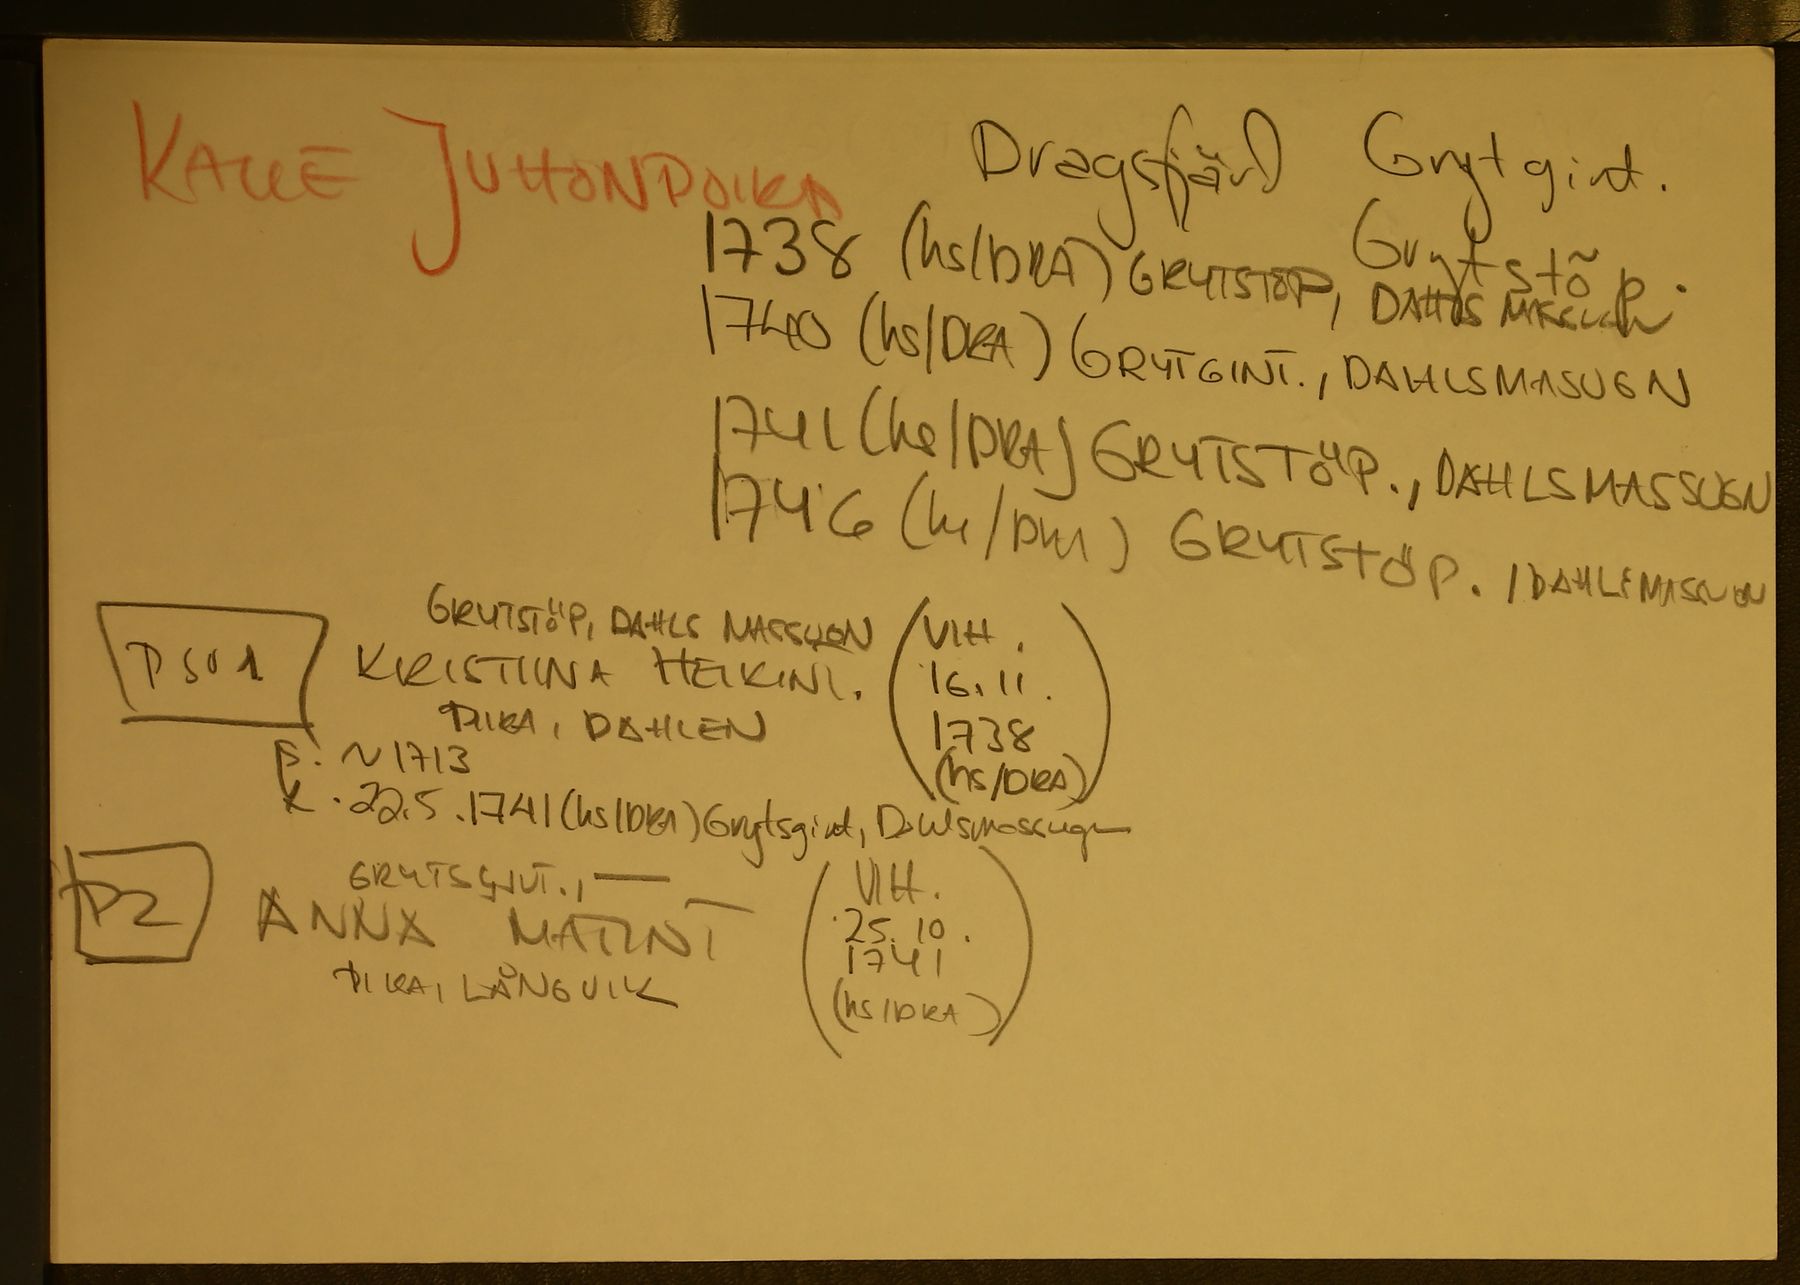 KALLE JUHONPOIKA
Dragsfjärd Grytgiut.
Grytstöp.
1738 (hs/DRA) GRYTSTÖP, DAHLS MASSUGN
1740 (hs/DRA) GRYTGINT., DAHLSMASUGN
1741 (hs/DRA) GRYTSTÖP., DAHLSMASSUGN
1746 (hs/DRA) GRYTSTÖP. / DAHLSMASSUGN
GRYTSTÖP, DAHLS MASSUGN
PSO1 KRISTIINA HEIKINT.
PIKA, DAHLEN
(VIH.
16.11.
1738
(hs/DRA))
S. ~1713
K. 22.5.1741 (hs/DRA) Grytsgiut, Dahlsmassugn
GRYTSGJUT., —
P2 ANNA MATINT
PIKA, LÅNGVIK
(VIH.
25.10.
1741
(hs/DRA))